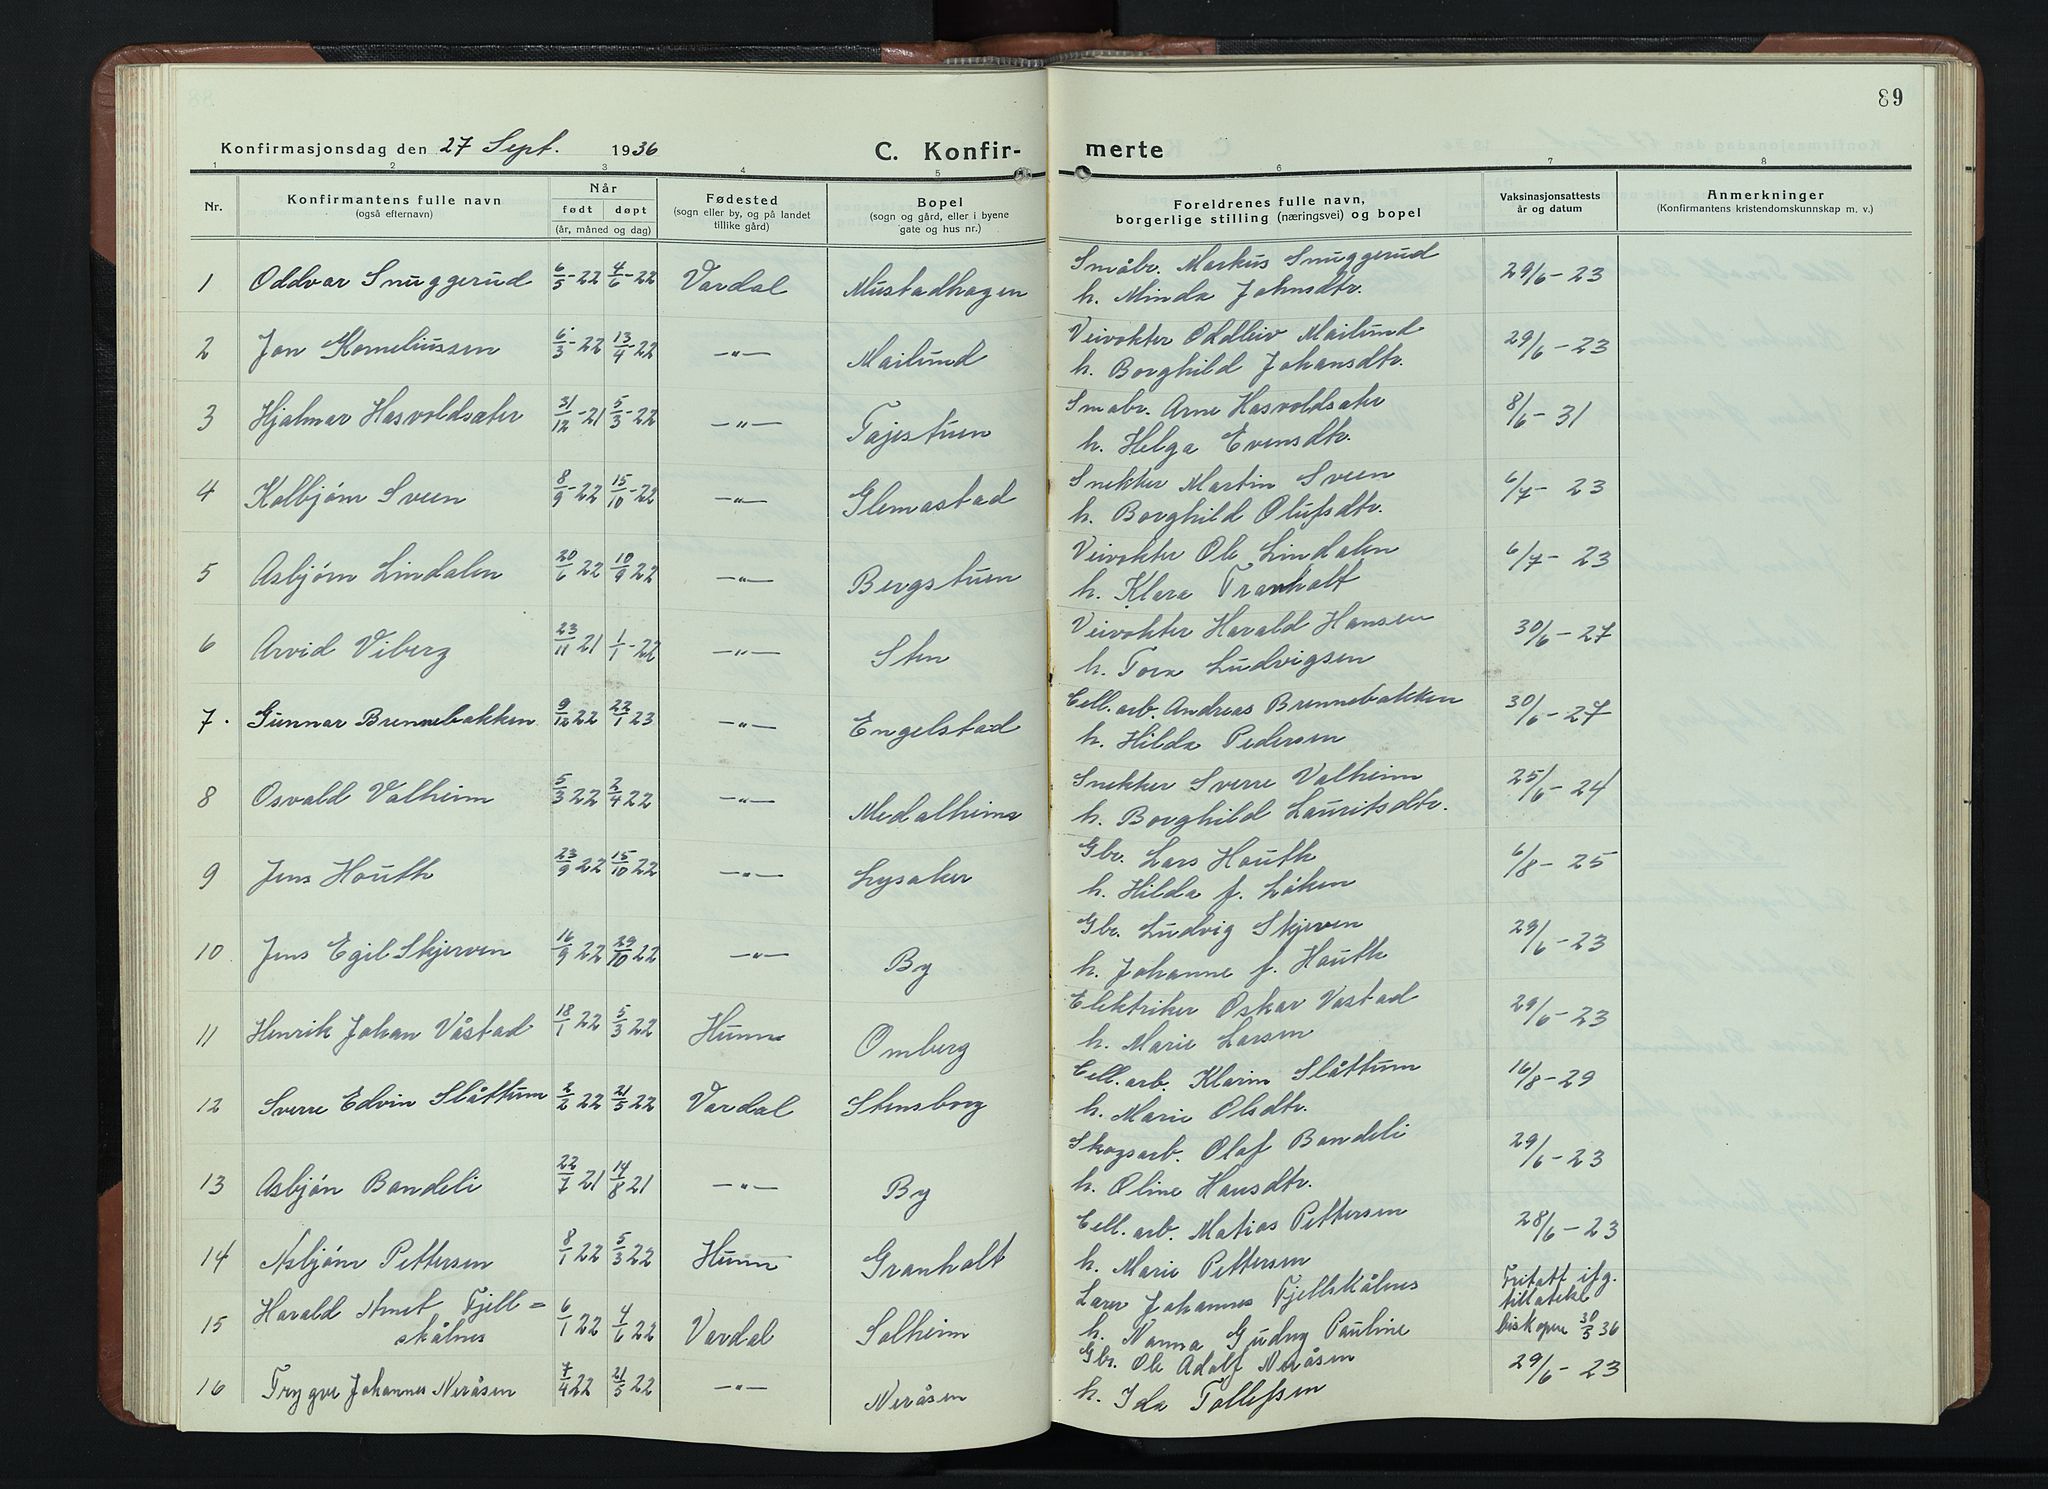 89
Konfirmasjonsdag den 27 Sept. 1936 C. Konfir-merte
1 2 3 4 5 6 7 8
Nr. Konfirmantens fulle navn (også efternavn) Når født døpt (år, måned og dag) Fødested (sogn eller by, og på landet tillike gård) Bopel (sogn og gård, eller i byene gate og hus nr.) Foreldrenes fulle navn, borgerlige stilling (næringsvei) og bopel Vaksinasjonsattests år og datum Anmerkninger (Konfirmantens kristendomskunnskap m. v.)
1 Oddvar Snuggerud 6/5-22 4/6-22 Vardal Mustadhagen Småbr. Markus Snuggerud 29/6-23
h. Minda Johnsdtr.
2 Jon Korneliussen 6/3-22 13/4-22 -"- Mailund Veivokter Oddleiv Mailund 29/6-23
h. Borghild Johansdtr.
3 Hjalmar Hasvoldsæter 31/12-21 5/3-22 -"- Tajestuen Småbr. Arne Hasvoldsæter 8/6-31
h. Helga Evensdtr.
4 Kolbjørn Sveen 8/9-22 15/10-22 -"- Glemastad Snekker Martin Sveen 6/7-23
h. Borghild Olufsdtr.
5 Asbjørn Lindalen 20/6 22 10/9 22 -"- Bergstuen Veivokter Ole Lindalen 6/7-23
h. Klara Tranholt
6 Arvid Viberg 23/11 21 1/1-22 -"- Sten Veivokter Harald Hansen 30/6-27
h. Tora Ludvigsen
7. Gunnar Brennebakken 9/12 22 22/1 23 -"- Engelstad Cell. arb. Andreas Brennebakken 30/6-27
h. Hilda Pedersen
8 Osvald Valheim 5/3 22 2/4 22 -"- Medalheim Snekker Sverre Valheim 25/6-24
h. Borghild Lauritsdtr.
9 Jens Houth 23/9 22 15/10 22 -"- Lysaker Gbr. Lars Houth 6/8-25
h. Hilda f. Løken
10 Jens Egil Skjerven 16/9 22 29/10 22 -"- By Gbr. Ludvig Skjerven 29/6-23
h. Johanne f. Houth
11 Henrik Johan Våstad 18/1 22 5/3 22 Hunn Omberg Elektriker Oskar Vastad 29/6-23
h. Marie Larsen
12 Sverre Edvin Slåttum 2/2 22 21/5 22 Vardal Stensborg Cell. arb. Klarin Slåttum 16/8-29
h. Marie Olsdtr.
13 Asbjøn Bandeli 22/7 21 14/8 21 -"- By Skogsarb. Olaf Bandeli 29/6-23
h. Oline Hansdtr.
14 Asbjørn Pettersen 8/1 22 5/3 22 Hunn Granholt Cell. arb. Matias Pettersen 28/6-23
h. Marie Pettersen
15 Harald Arnet Fjell= 6/1 22 4/6 22 Vardal Solheim Lærer Johannes Fjellskålnes Fritatt ifg.
skålnes h. Nanna Gudny Pauline tillatelse
biskopen 30/5 36
16 Trygve Johannes Neråsen 7/4 22 21/5 22 -"- Neråsen Gbr. Ole Adolf Neråsen 29/6-23
h. Ida Tollefsen